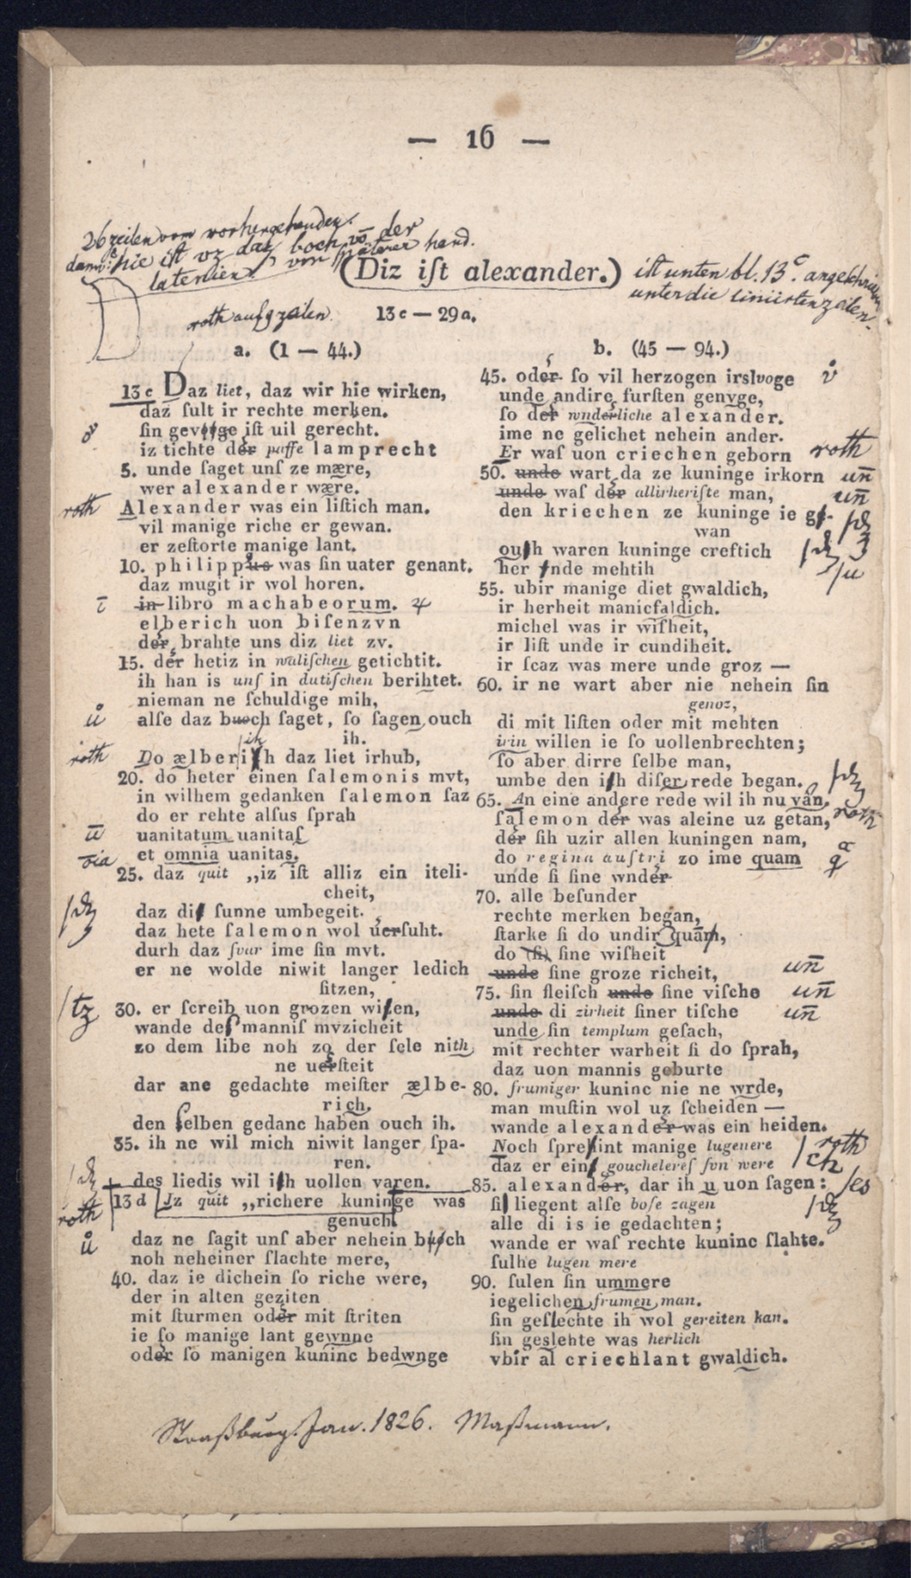 — 16 —
26 zeilen vom vorhergehenden.
dann: hie ist vz daz boch vō der
latenien von späterer hand.
(Diz iſt alexander.)
ist unten bl. 13c angeschrieben
unter die liniirten zeilen.
roth auf 9 zeilen
13 c — 29 a.
a. (1 — 44.)
13 c Daz liet, daz wir hie wirken,
daz ſult ir rechte merken.
ſin gevſge iſt uil gerecht.
iz tichte der paffe lamprecht
5. unde ſaget unſ ze mære,
wer alexander wære.
roth
Alexander was ein liſtich man.
vil manige riche er gewan.
er zeſtorte manige lant.
10. philippus was ſin uater genant.
daz mugit ir wol horen.
in libro machabeorum.
elberich uon biſenzvn
der brahte uns diz liet zv.
15. der hetiz in waliſchen getichtit.
ih han is unſ in dutiſchen berihtet.
nieman ne ſchuldige mih,
alſe daz buoch ſaget, ſo ſagen ouch
ih.
roth
Do ælberich daz liet irhub,
20. do heter einen ſalemonis mvt,
in wilhem gedanken ſalemon ſaz
do er rehte alſus ſprah
uanitatum uanitaſ
et omnia uanitas.
25. daz quit „iz iſt alliz ein iteli-
cheit,
daz di ſunne umbegeit.
daz hete ſalemon wol uerſuht.
durh daz ſvar ime ſin mvt.
er ne wolde niwit langer ledich
ſitzen,
tz
30. er ſcreib uon grozen witzen,
wande des manniſ mvzicheit
zo dem libe noh zo der ſele nith
ne uerſteit
dar ane gedachte meiſter ælbe-
rich.
den ſelben gedanc haben ouch ih.
35. ih ne wil mich niwit langer ſpa-
ren.
des liedis wil ich uollen varen.
roth
13 d Iz quit „richere kuninge was
genuch
daz ne ſagit unſ aber nehein buch
noh neheiner ſlachte mere,
40. daz ie dichein ſo riche were,
der in alten geziten
mit ſturmen oder mit ſtriten
ie ſo manige lant gewnne
oder ſo manigen kuninc bedwnge
b. (45 — 94.)
45. oder ſo vil herzogen irslvoge
unde andire furſten genvge,
ſo der wnderliche alexander.
ime ne gelichet nehein ander.
Er waſ uon criechen geborn
roth
50. unde wart da ze kuninge irkorn
un̄
unde waſ der allirheriſte man,
un̄
den kriechen ze kuninge ie g-
wan
ouch waren kuninge creftich
her unde mehtih
55. ubir manige diet gwaldich,
ir herheit manicfaldich.
michel was ir wiſheit,
ir liſt unde ir cundiheit.
ir ſcaz was mere unde groz —
60. ir ne wart aber nie nehein ſin
genoz,
di mit liſten oder mit mehten
irin willen ie ſo uollenbrechten;
ſo aber dirre ſelbe man,
umbe den ich diſer rede began.
65. An eine andere rede wil ih nu van,
roth
ſalemon der was aleine uz getan,
der ſih uzir allen kuningen nam,
do regina auſtri zo ime quam
unde ſi ſine wnder
70. alle beſunder
rechte merken began,
ſtarke ſi do undir quam,
do (ſi) ſine wiſheit
unde ſine groze richeit,
un̄
75. ſin fleiſch unde ſine viſche
un̄
unde di zirheit ſiner tiſche
un̄
unde ſin templum geſach,
mit rechter warheit ſi do ſprah,
daz uon mannis geburte
80. frumiger kuninc nie ne wrde,
man muſtin wol uz ſcheiden —
wande alexander was ein heiden.
Noch ſprechint manige lugenere
roth
ch
daz er einſ gouchelereſ ſvn were
85. alexander, dar ih u uon ſagen:
es
ſi liegent alſe boſe zagen
alle di is ie gedachten;
wande er waſ rechte kuninc ſlahte.
ſulhe lugen mere
90. ſulen ſin ummere
iegelichen frumen man.
ſin geſlechte ih wol gereiten kan.
ſin geslehte was herlich
vbir al criechlant gwaldich.
Straßburg. Jan. 1826. Maßmann.